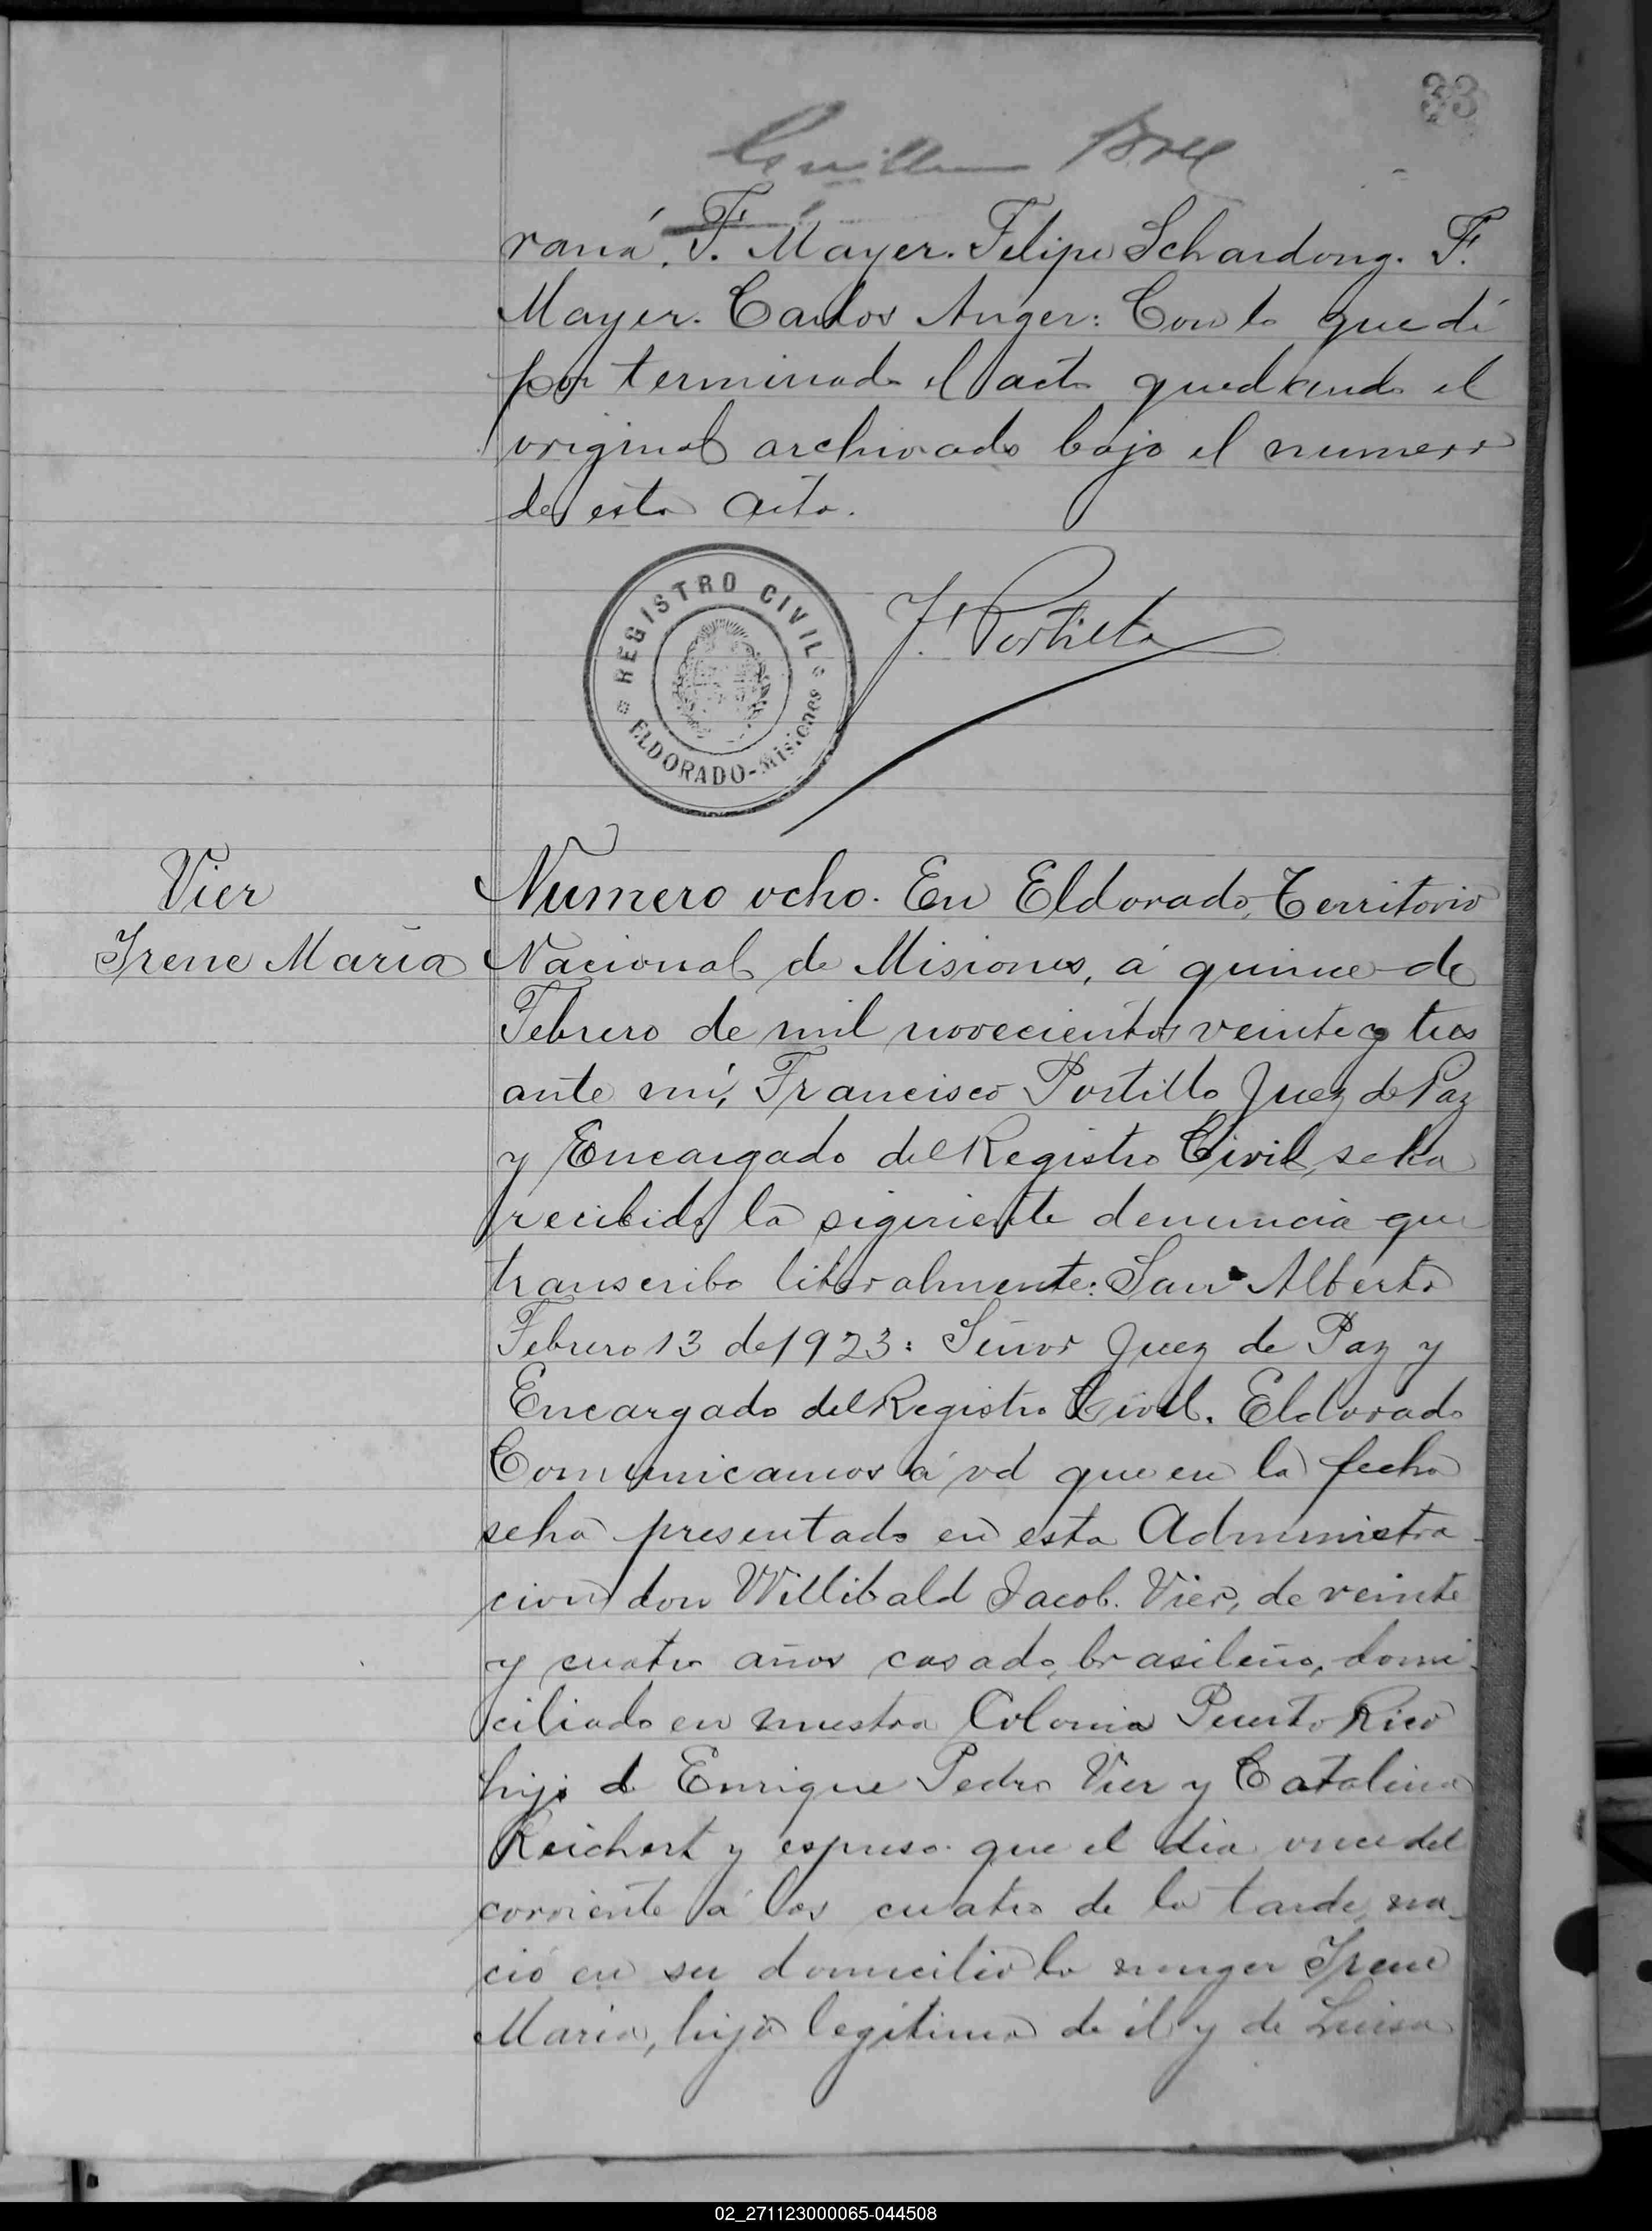 33
Guillermo
raná. F. Mayer. Felipe Schardong. F.
Mayer. Carlos Anger: Con lo que dí
por terminado el acto quedando el
original archivado bajo el numero
de esta acta.
REGISTRO CIVIL
ELDORADO-Misiones
F. Portillo
Vier
Irene María
Numero ocho. En Eldorado, Territorio
Nacional de Misiones, á quince de
Febrero de mil novecientos veinte y tres
ante mí, Francisco Portillo Juez de Paz
y Encargado del Registro Civil, se ha
recibido la siguiente denuncia que
transcribo literalmente: San Alberto
Febrero 13 de 1923: Señor Juez de Paz y
Encargado del Registro Civil. Eldorado
Comunicamos á vd que en la fecha
se ha presentado en esta Administra-
cion don Willibald Jacob. Vier, de veinte
y cuatro años casado, brasileño, domi-
ciliado en nuestra Colonia Puerto Rico
hijo de Enrique Pedro Vier y Catalina
Reichert y espuso que el dia once del
corriente á las cuatro de la tarde, na-
ció en su domicilio la mujer Irene
Maria, hija legitima de él y de Luisa
02_271123000065-044508